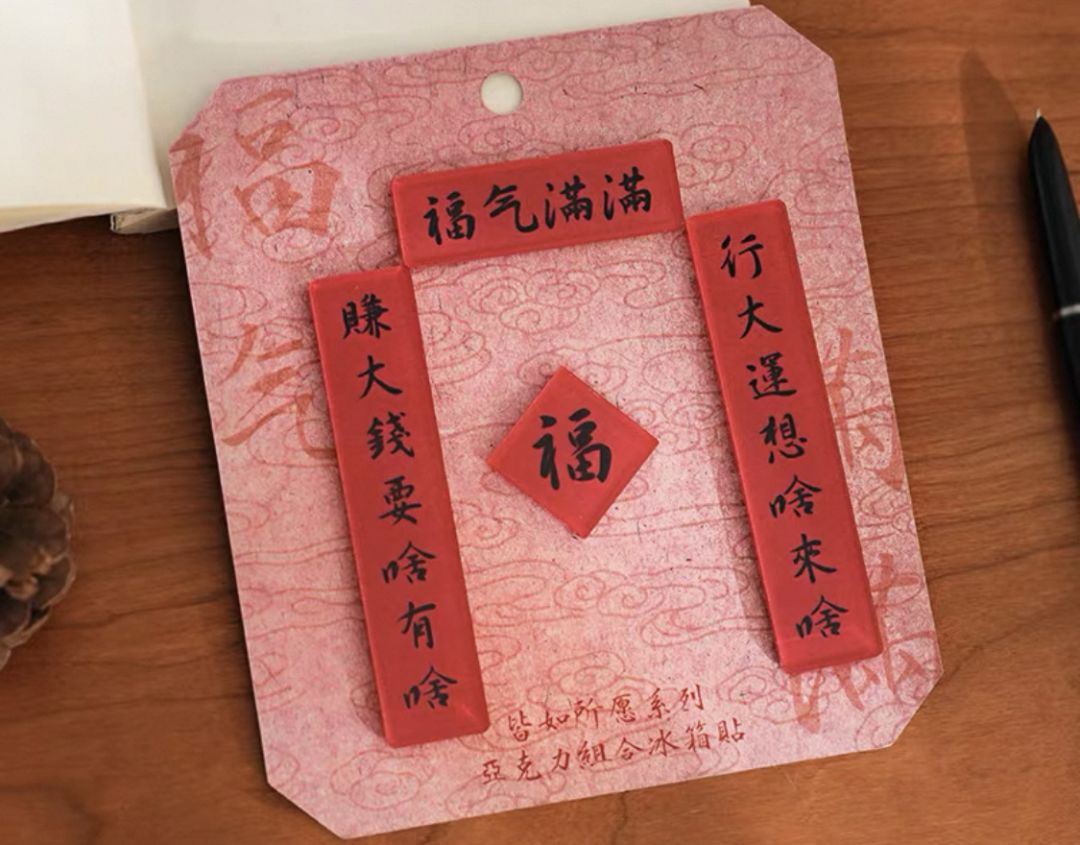 福气滿滿
行大運想啥來啥
賺大錢要啥有啥
福
福气
滿滿
皆如所愿系列
亞克力組合冰箱貼